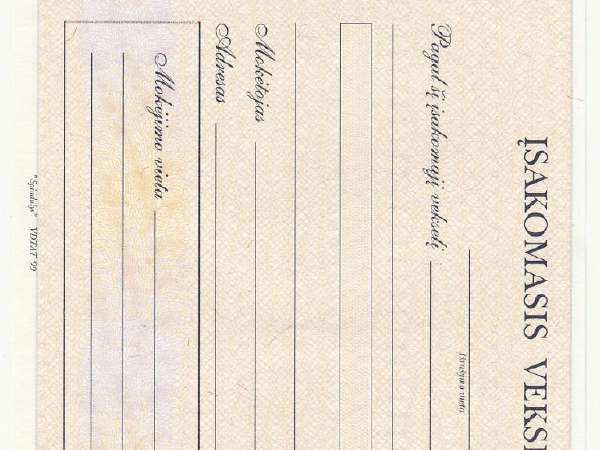 ĮSAKOMASIS VEKS
Išrašymo vieta
Pagal šį įsakomąjį vekselį
Mokėtojas
Adresas
Mokėjimo vieta
"Spindulys" VDTAT '99